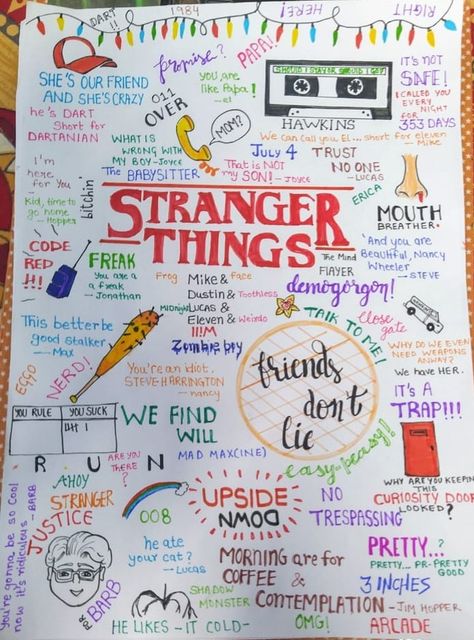 DART
!!
1984
HERE!
RIGHT
SHE'S OUR FRIEND
AND SHE'S CRAZY
promise?
PAPA!
you are
like Papa!
- el
SHOULD I STAY OR SHOULD I GO?
HAWKINS
IT'S NOT
SAFE!
I CALLED YOU
EVERY
NIGHT
FOR
353 DAYS
he's DART
Short for
DARTANIAN
011
OVER
MOM?
We can call you El... short for eleven
- Mike
WHAT IS
WRONG WITH
MY BOY - Joyce
JULY 4
TRUST
NO ONE
- LUCAS
That is NOT
my SON! - Joyce
The BABYSITTER
I'm
here
for You
bitchin'
Kid, time to
go home
- Hopper
ERICA
MOUTH
BREATHER.
STRANGER
THINGS
The Mind
FLAYER
And you are
Beautiful, Nancy
Wheeler
- STEVE
CODE
RED
!!!
FREAK
You are a
a freak
- Jonathan
Frog
Mike &
Face
Dustin &
Toothless
Midnight
Lucas &
Eleven &
Weirdo
!!!M
Zombie boy
demogorgon!
TALK TO ME!
close
gate
This better be
good stalker
- Max
WHY DO WE EVEN
NEED WEAPONS
ANWAY?
We have HER.
EGGO
NERD!
You're an idiot,
STEVE HARRINGTON
- nancy
friends
don't
lie
IT'S A
TRAP!!!
YOU RULE
YOU SUCK
WE FIND
WILL
easy-peasy!
R U N
MAD MAX(INE)
ARE YOU
THERE
?
WHY ARE YOU KEEPIN
THIS
CURIOSITY DOOR
LOOKED?
AHOY
STRANGER
JUSTICE
FOR
BARB
008
UPSIDE
DOWN
NO
TRESPASSING
You're gonna be so cool
now it's ridiculous - BARB
he ate
your cat?
- Lucas
MORNING are for
COFFEE &
CONTEMPLATION - JIM HOPPER
PRETTY..?
PRETTY... PR-PRETTY
GOOD
3 INCHES
SHADOW
MONSTER
HE LIKES - IT COLD -
OMG!
ARCADE